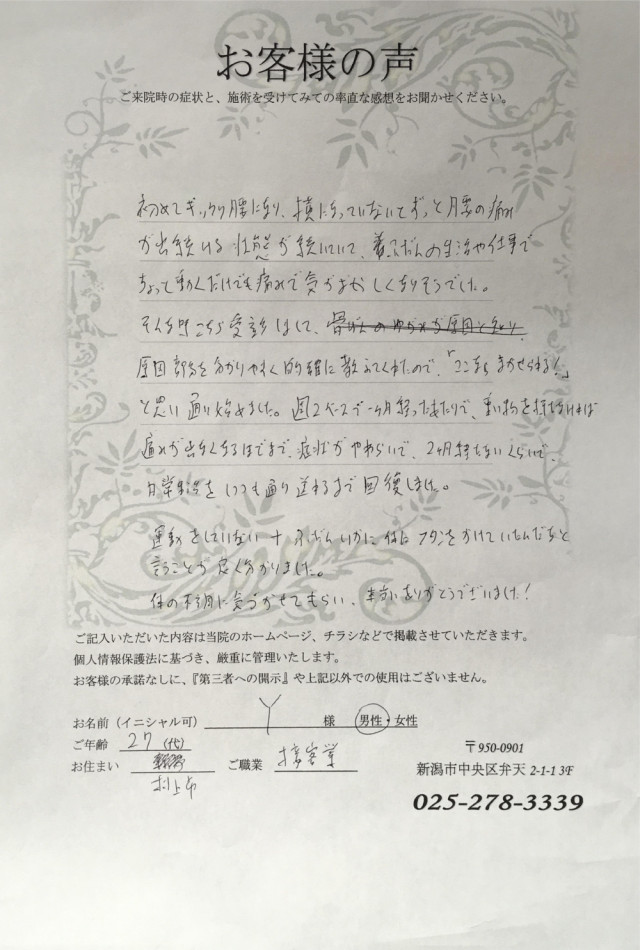 お客様の声
ご来院時の症状と、施術を受けてみての率直な感想をお聞かせください。
初めてギックリ腰になり、横になっていないとずっと腰の痛み
が出続ける状態が続いていて、普段の生活や仕事で
ちょっと動くだけでも痛みで気がおかしくなりそうでした。
そんな時こちらを受診しまして、骨ばんのゆがみが原因と知り、
原因部分を分かりやすく的確に教えてくれたので、「ここならまかせられる!」
と思い通い始めました。週2ペースで一ヶ月経ったあたりで、重い物を持たなければ
痛みが出なくなるほどまで、症状がやわらいで、2ヶ月経たないくらいで、
日常生活をいつも通り送れるまで回復しました。
運動をしていない+ふだんいかに体にフタンをかけていたんだなと
言うことが良く分かりました。
体の不調に気づかせてもらい、本当にありがとうございました!
ご記入いただいた内容は当院のホームページ、チラシなどで掲載させていただきます。
個人情報保護法に基づき、厳重に管理いたします。
お客様の承諾なしに、『第三者への開示』や上記以外での使用はございません。
お名前(イニシャル可) Y 様 男性・女性
ご年齢 27(代)
お住まい 村上市 ご職業 接客業
〒950-0901
新潟市中央区弁天 2-1-1 3F
025-278-3339